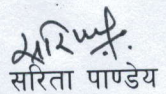 सरिता पाण्डेय